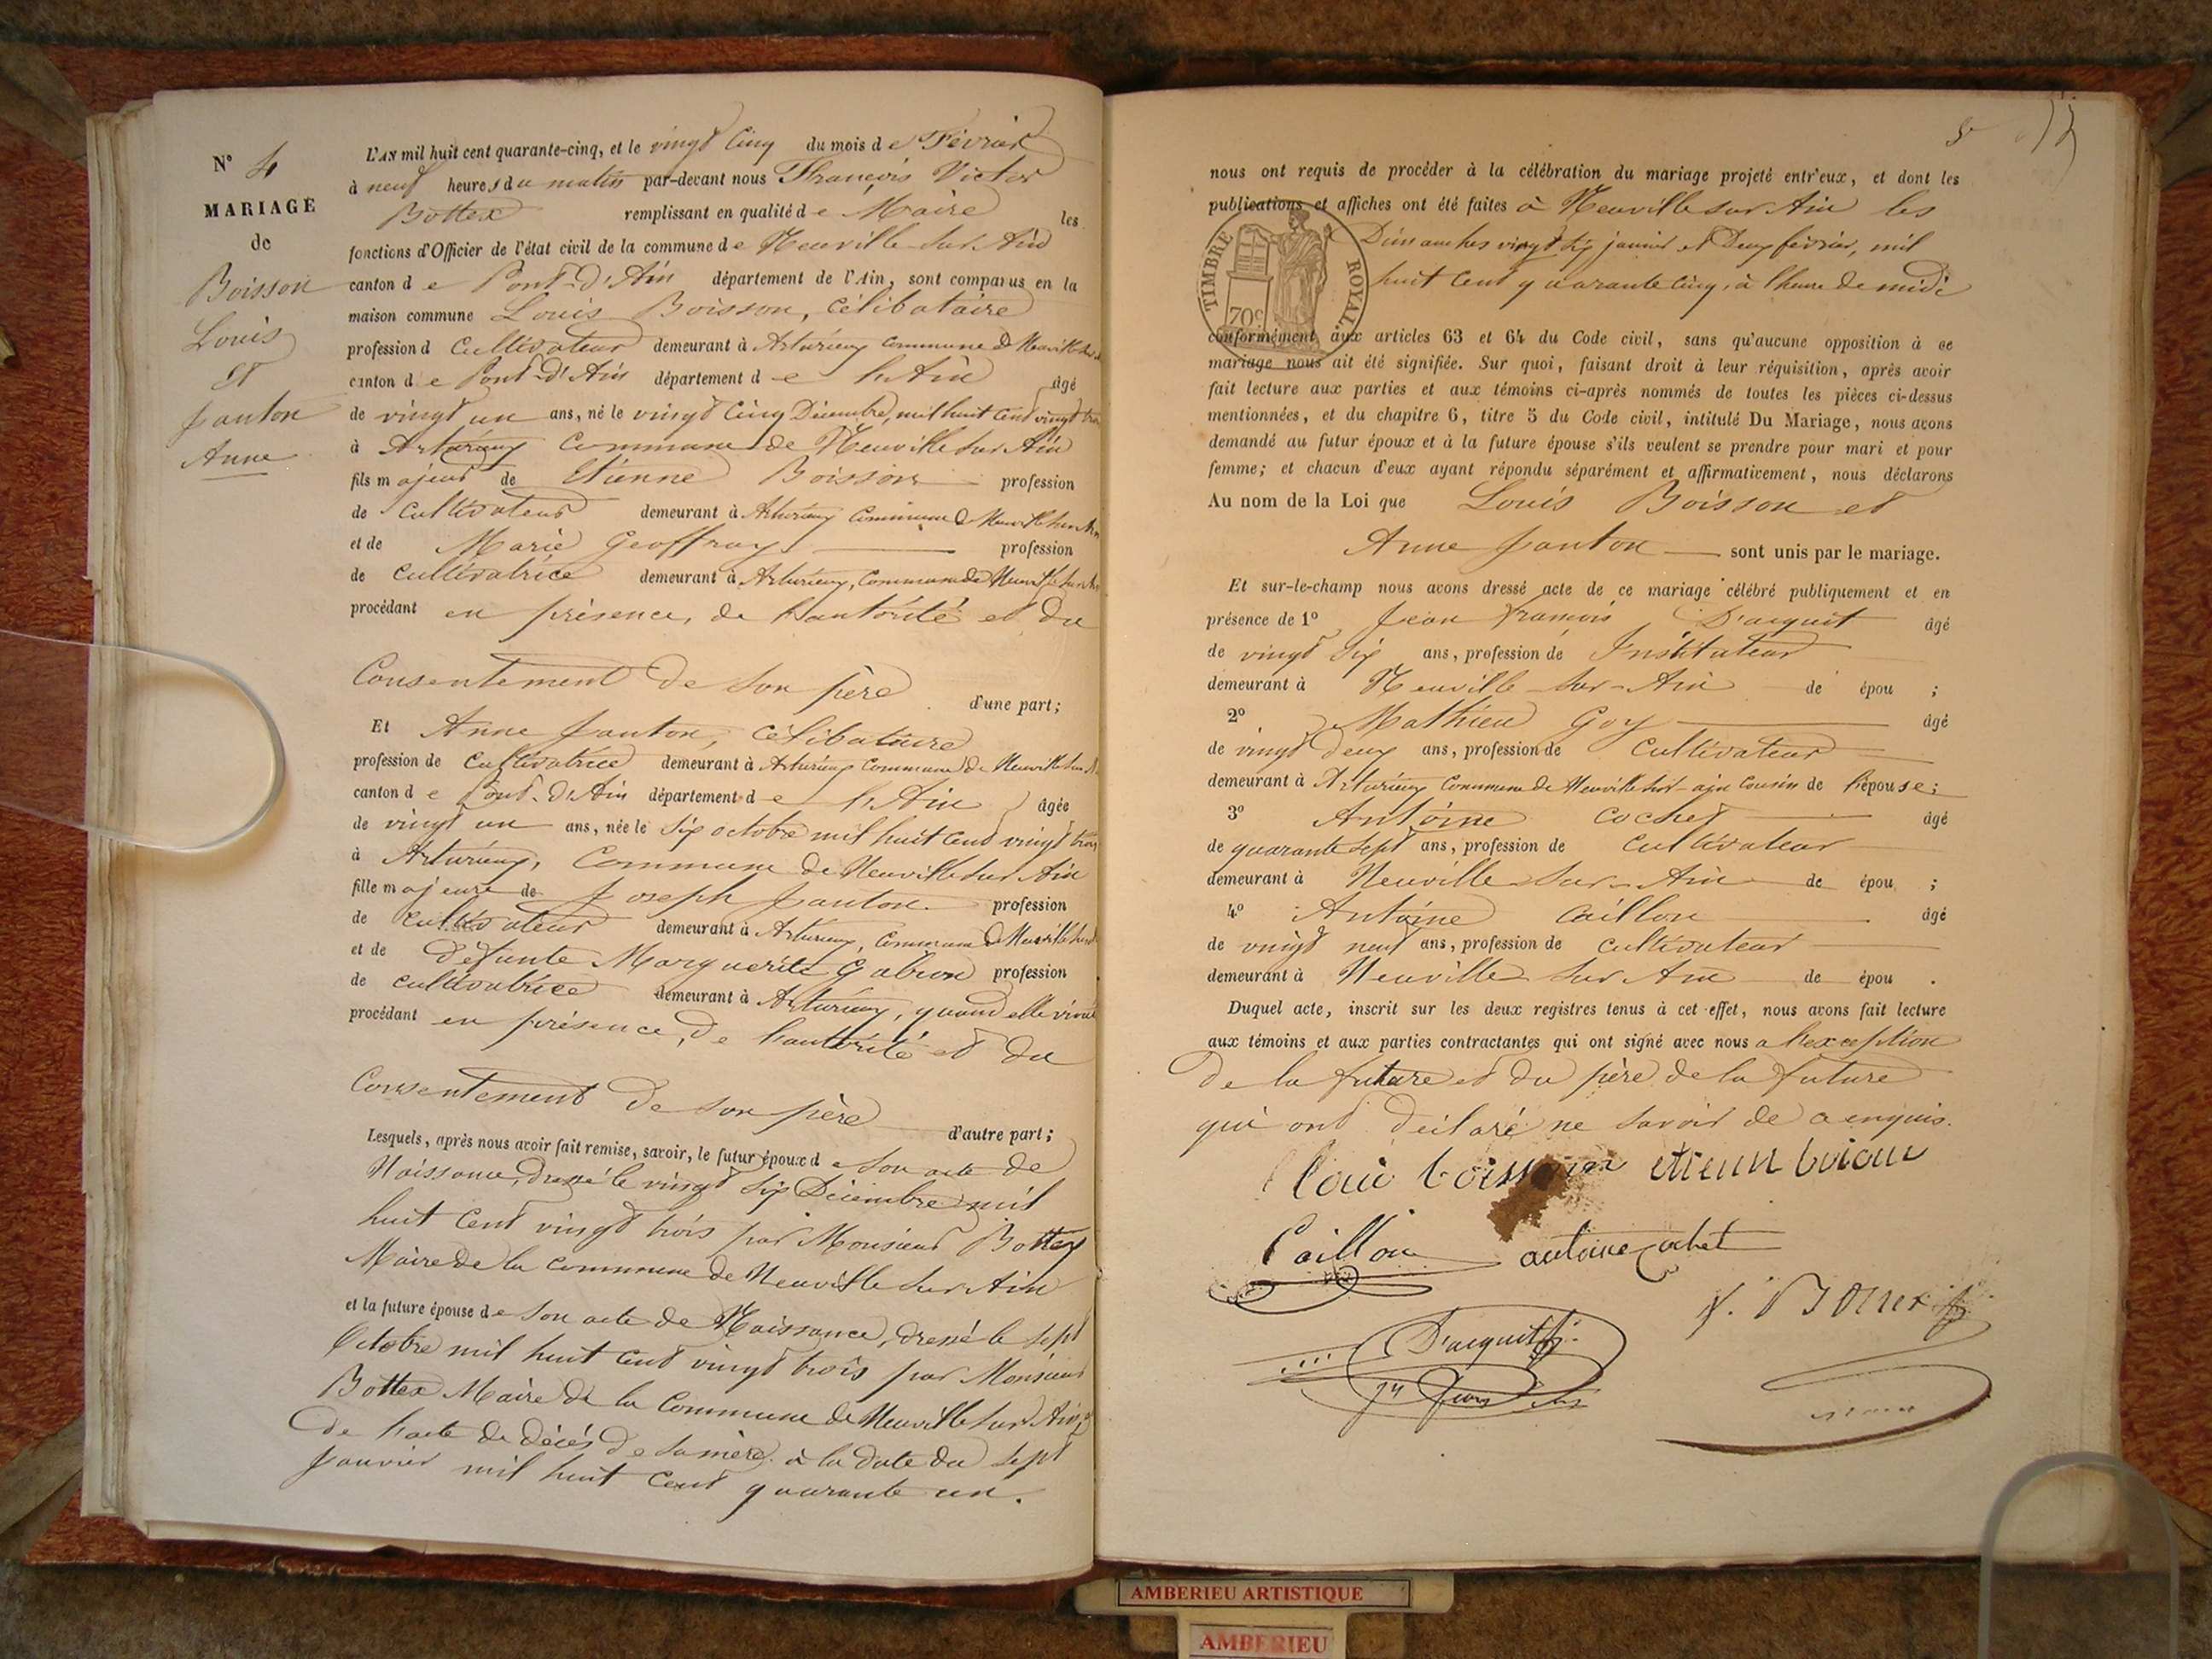 N° 4
MARIAGE
de
Boisson
Louis
et
Janton
Anne
L'AN mil huit cent quarante-cinq, et le vingt cinq du mois de Février
à neuf heures du matin par-devant nous François Victor
Bottex remplissant en qualité de Maire les
fonctions d'Officier de l'état civil de la commune de Neuville sur Ain
canton de Pont-d'Ain département de l'Ain, sont comparus en la
maison commune Louis Boisson, célibataire
profession d cultivateur demeurant à Arturieux commune de Neuville sur
canton de Pont-d'Ain département de l'Ain âgé
de vingt un ans, né le vingt cinq Décembre, mil huit cent vingt trois
à Arturieux commune de Neuville sur Ain
fils majeur de Etienne Boisson profession
de cultivateur demeurant à Arturieux commune de Neuville sur Ain
et de Marie Geoffray profession
de cultivatrice demeurant à Arturieux, commune de Neuville sur Ain
procédant en présence, de l'autorité et du
Consentement de son père d'une part;
Et Anne Janton, célibataire
profession de cultivatrice demeurant à Arturieux commune de Neuville sur
canton de Pont-d'Ain département de l'Ain âgée
de vingt un ans, née le six octobre mil huit cent vingt trois
à Arturieux, commune de Neuville sur Ain
fille majeure de Joseph Janton profession
de cultivateur demeurant à Arturieux, commune de Neuville sur
et de défunte Marguerite Gabion profession
de cultivatrice demeurant à Arturieux, quand elle vivait
procédant en présence, de l'autorité et du
Consentement de son père d'autre part;
Lesquels, après nous avoir fait remise, savoir, le futur époux de son acte de
Naissance, dressé le vingt six Décembre mil
huit cent vingt trois par Monsieur Bottex
Maire de la commune de Neuville sur Ain
et la future épouse de son acte de Naissance, dressé le sept
Octobre mil huit cent vingt trois par Monsieur
Bottex Maire de la Commune de Neuville sur Ain,
de l'acte de décès de sa mère à la date du sept
Janvier mil huit cent quarante un.
nous ont requis de procéder à la célébration du mariage projeté entr'eux, et dont les
publications et affiches ont été faites à Neuville sur Ain les
Dimanches vingt six janvier et Deux février, mil
huit cent quarante cinq, à l'heure de midi
TIMBRE ROYAL
70c
conformément aux articles 63 et 64 du Code civil, sans qu'aucune opposition à ce
mariage nous ait été signifiée. Sur quoi, faisant droit à leur réquisition, après avoir
fait lecture aux parties et aux témoins ci-après nommés de toutes les pièces ci-dessus
mentionnées, et du chapitre 6, titre 5 du Code civil, intitulé Du Mariage, nous avons
demandé au futur époux et à la future épouse s'ils veulent se prendre pour mari et pour
femme; et chacun d'eux ayant répondu séparément et affirmativement, nous déclarons
Au nom de la Loi que Louis Boisson et
Anne Janton sont unis par le mariage.
Et sur-le-champ nous avons dressé acte de ce mariage célébré publiquement et en
présence de 1° Jean François D'acquit âgé
de vingt six ans, profession de Instituteur
demeurant à Neuville-sur-Ain de épou ;
2° Mathieu Goy âgé
de vingt deux ans, profession de cultivateur
demeurant à Arturieux commune de Neuville sur-ain cousin de l'épouse;
3° Antoine Cochet âgé
de quarante sept ans, profession de cultivateur
demeurant à Neuville-sur-Ain de épou ;
4° Antoine Caillon âgé
de vingt neuf ans, profession de cultivateur
demeurant à Neuville sur Ain de épou .
Duquel acte, inscrit sur les deux registres tenus à cet effet, nous avons fait lecture
aux témoins et aux parties contractantes qui ont signé avec nous a l'exception
de la future et du père de la future
qui ont déclaré ne savoir de ce enquis.
Caillon antoine cochet
D'acquit
AMBERIEU ARTISTIQUE
AMBERIEU